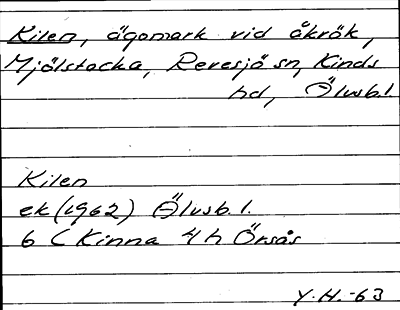 Kilen, ägomark vid åkrök,
Mjölstocka, Revesjö sn, Kinds
hd, Älvsb.l
Kilen
ek (1962) Älvsb.l.
6 C Kinna 4 h Örsås
Y.H.-63